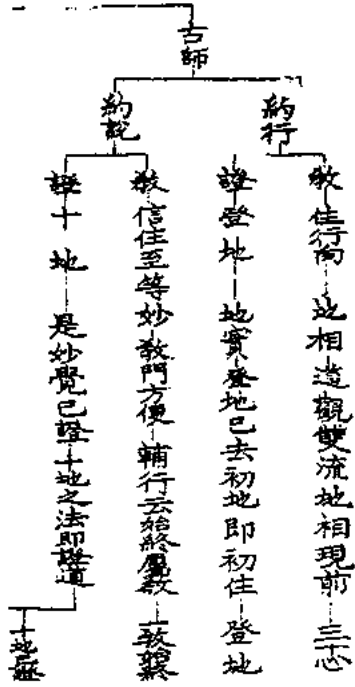 古師
約行
教 住行向 地相 造觀雙流地相現前 三十心
證 登地 地實 登地已去初地即初住 登地
約說
教 信住至等妙 教門方便 輔行云始終屬教
證 十地 是妙覺已證十地之法即證道
十地已證